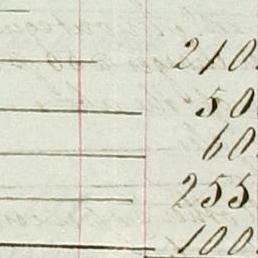 210.
50
60
255
100.